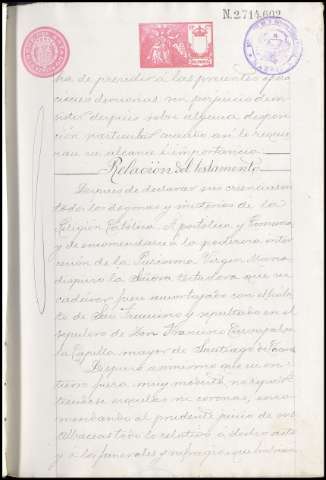 N.2.714.602
ha de preceder á las presentes opera
ciones demanas sin perjuicio de in
sistir después sobre alguna disposi
ción particular cuando así lo requie
ran su alcance é importancia
Relación del testamento
Después de declarar sus creencias en
todos los dogmas y misterios de la
Religión Católica, Apostólica y Romana
y de encomendarse á la poderosa inter
cesión de la Purísima Virgen María
dispuso la Señora testadora que su
cadáver fuese amortajado con el hábi
to de San Francisco y sepultado en el
sepulcro de Don Francisco
la Capilla mayor de Santiago de
Dispuso asimismo que su en
tierro fuera muy modesto, no repar
tiéndose esquelas ni coronas, enco
mendando al prudente juicio de sus
Albaceas todo lo relativo á dicho acto
y á los funerales y sufragios que habían